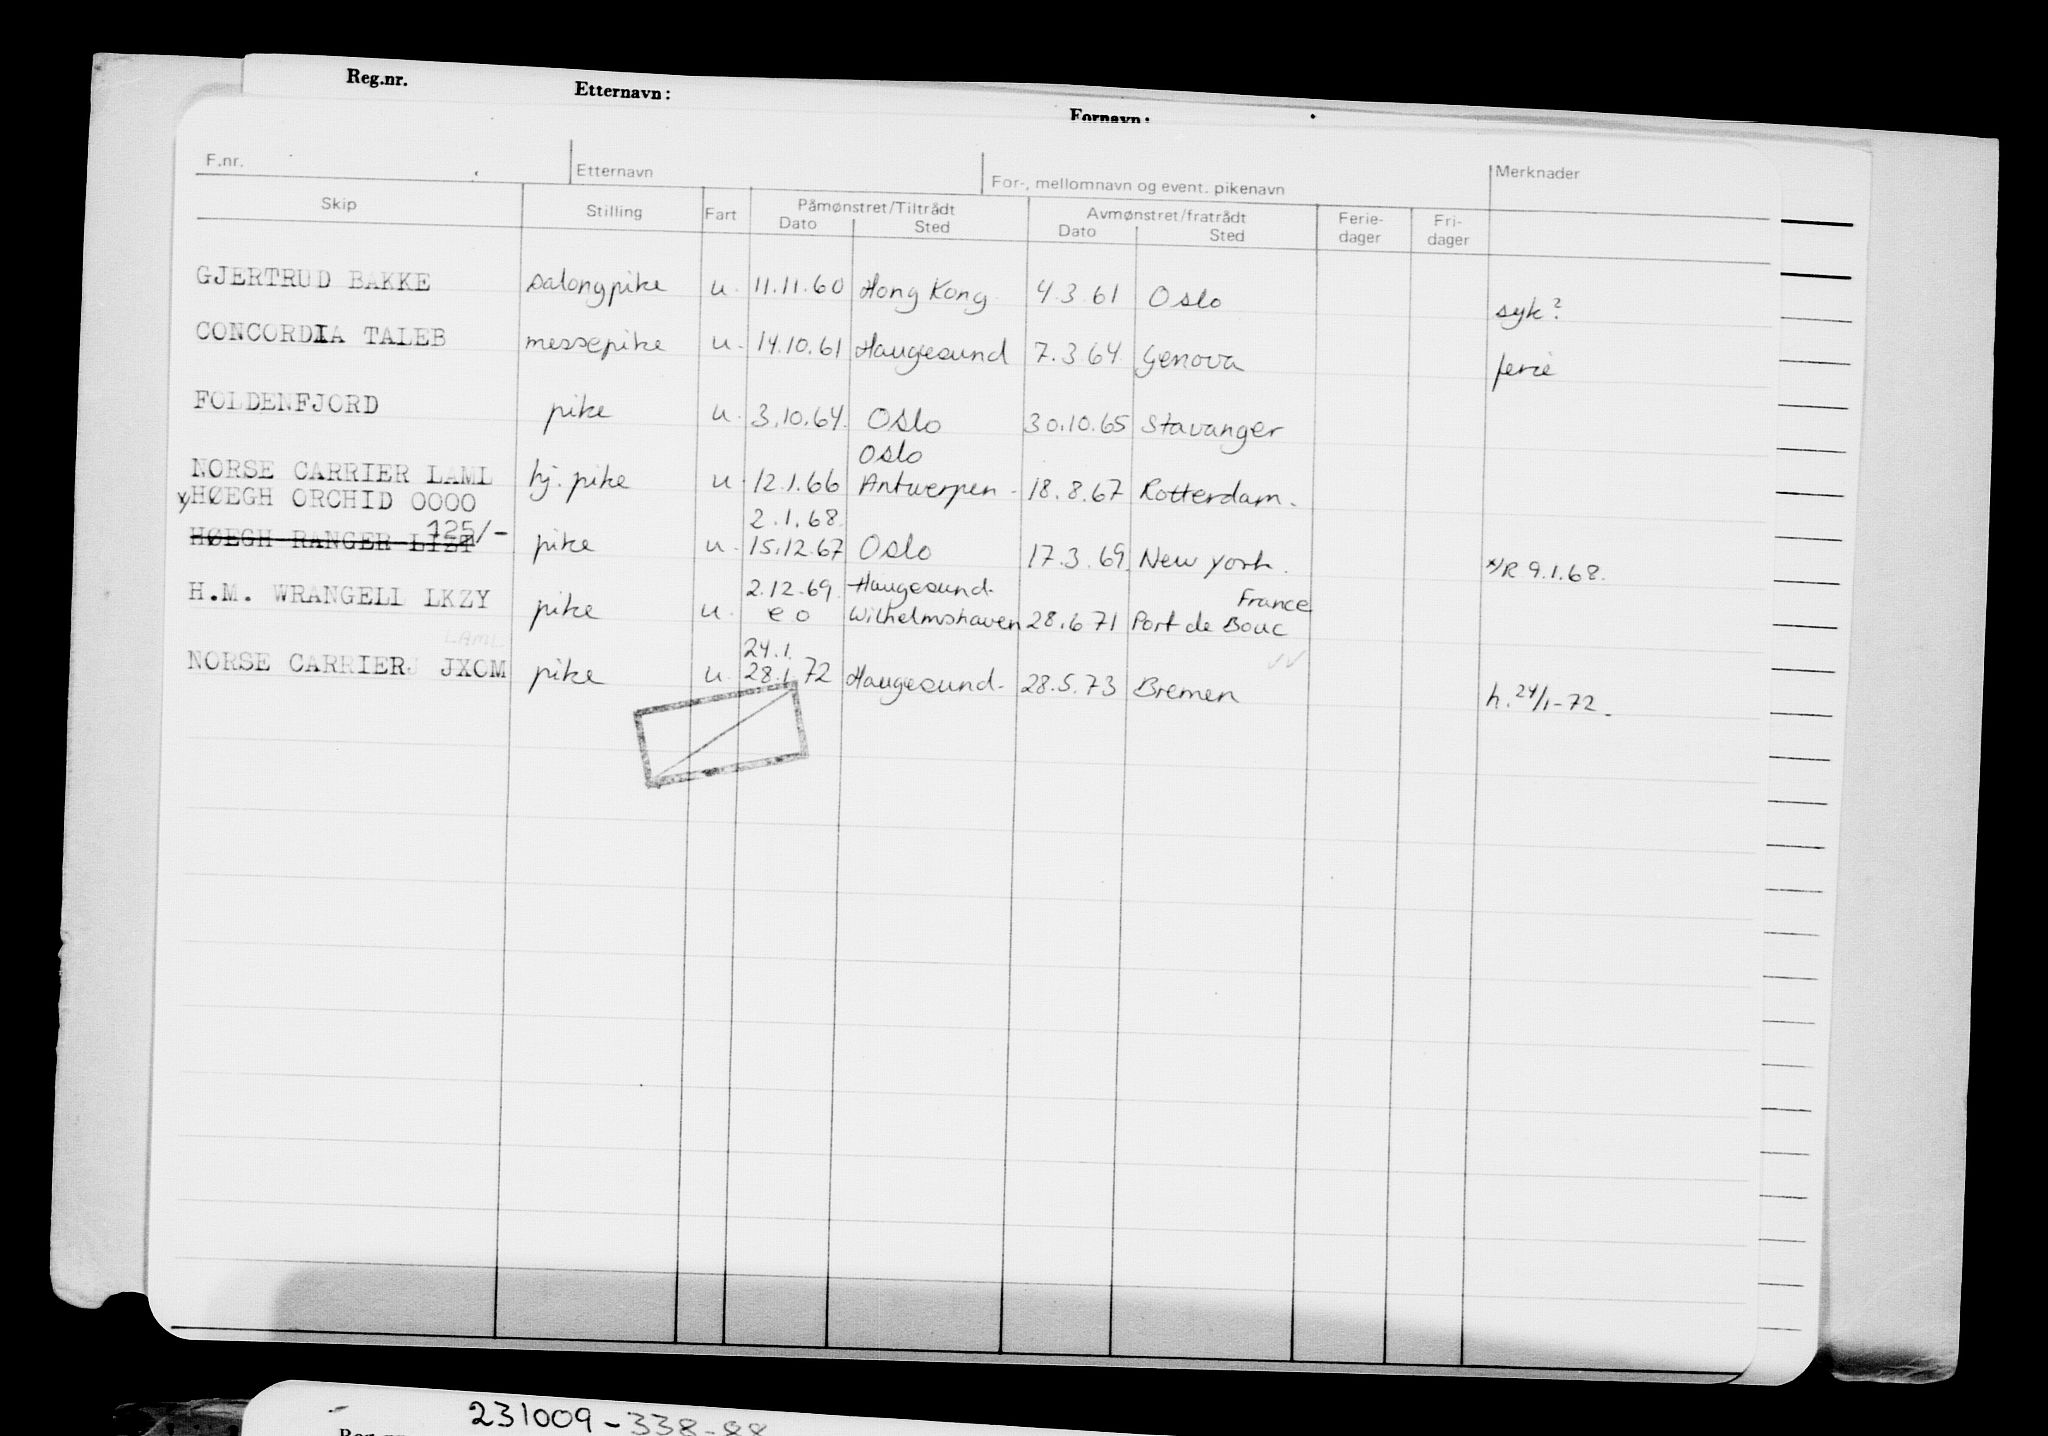 Reg.nr. Etternavn: Fornavn:
F.nr. Etternavn For-, mellomnavn og event. pikenavn Merknader
Skip Stilling Fart Påmønstret/Tiltrådt Avmønstret/fratrådt Ferie- Fri-
Dato Sted Dato Sted dager dager
GJERTRUD BAKKE salongpike u. 11.11.60 Hong Kong. 4.3.61 Oslo syk?
CONCORDIA TALEB messepike u. 14.10.61 Haugesund 7.3.64. Genova ferie
FOLDENFJORD pike u. 3.10.64. Oslo 30.10.65 Stavanger
Oslo
NORSE CARRIER LAML hj. pike u. 12.1.66 Antwerpen - 18.8.67 Rotterdam.
x/HØEGH ORCHID OOOO
125/- 2.1.68.
HØEGH RANGER LIZT pike u. 15.12.67 Oslo 17.3.69. New York. x/R 9.1.68.
2.12.69. Haugesund. France
H.M. WRANGELL LKZY pike u. e o Wilhelmshaven 28.6 71 Port de Bouc
LAML
24.1.
NORSE CARRIERJ JXOM pike u. 28.1.72 Haugesund. 28.5.73 Bremen h. 24/1-72.
231009-338-88
Reg.nr